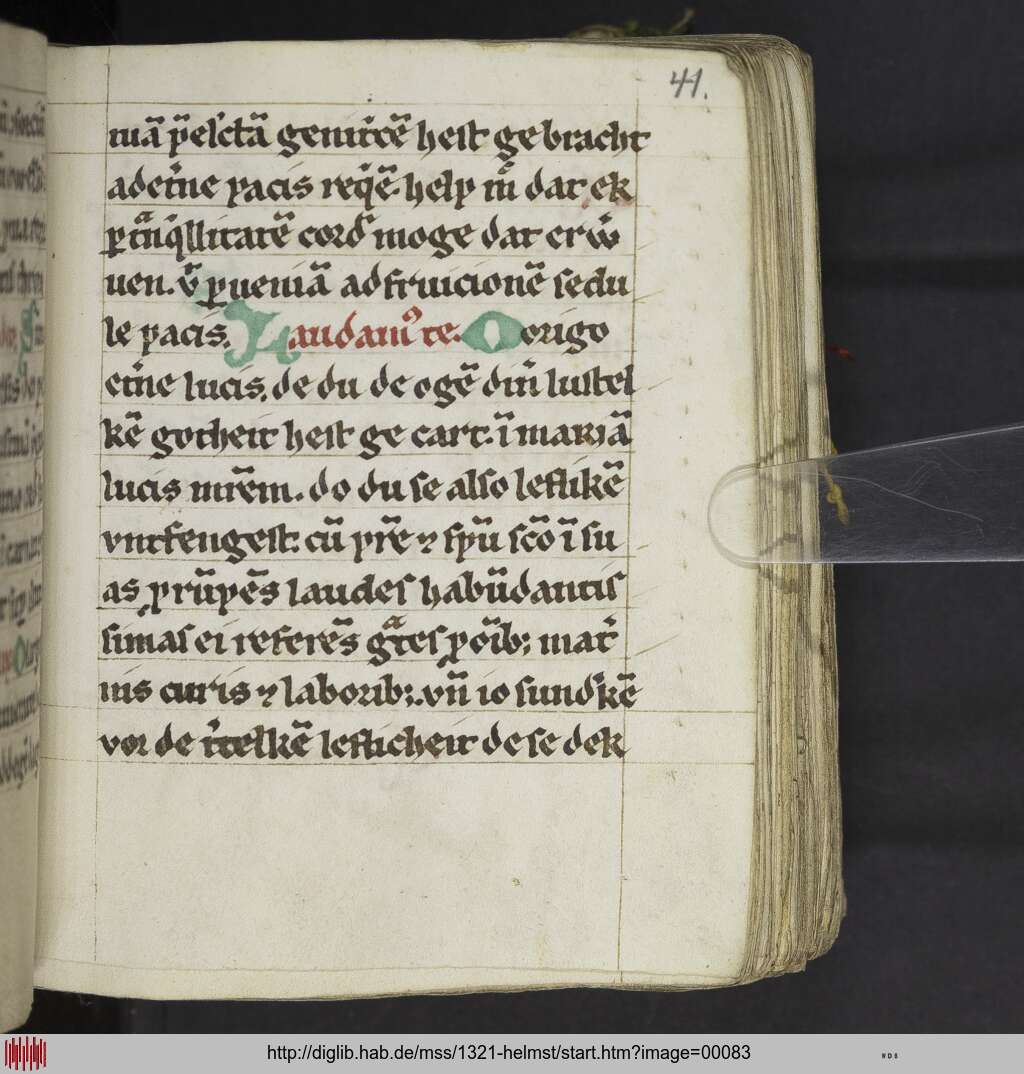 41.
tuā p̄elc̄tā genitcē heſt gebracht
adet̓ne pacis req̓ē. help m̄ dat ek
ꝑtnq̓llitatē cord̓ moge dat erẘ
uen. v̄ ꝑueniā ad fruicionē sedu
le pacis. Laudam⁹ te. O origo
et̓ne lucis. de du de ogē din̄ luſtel
kē gotheit heſt ge cart. ī mariā
lucis mr̄em. do du se alſo leflikē
vntfengeſt. cū pr̄e ⁊ ſpū ſc̄o ī su
as prūpēs laudeſ habūdantiſ
simaſ ei referēs gr̄teſ ꝓ oīb; mat̓
nis curis ⁊ laborib;. vn̄ io sund̓kē
vor de it̓telkē leflicheit de se dek
http://diglib.hab.de/mss/1321-helmst/start.htm?image=00083